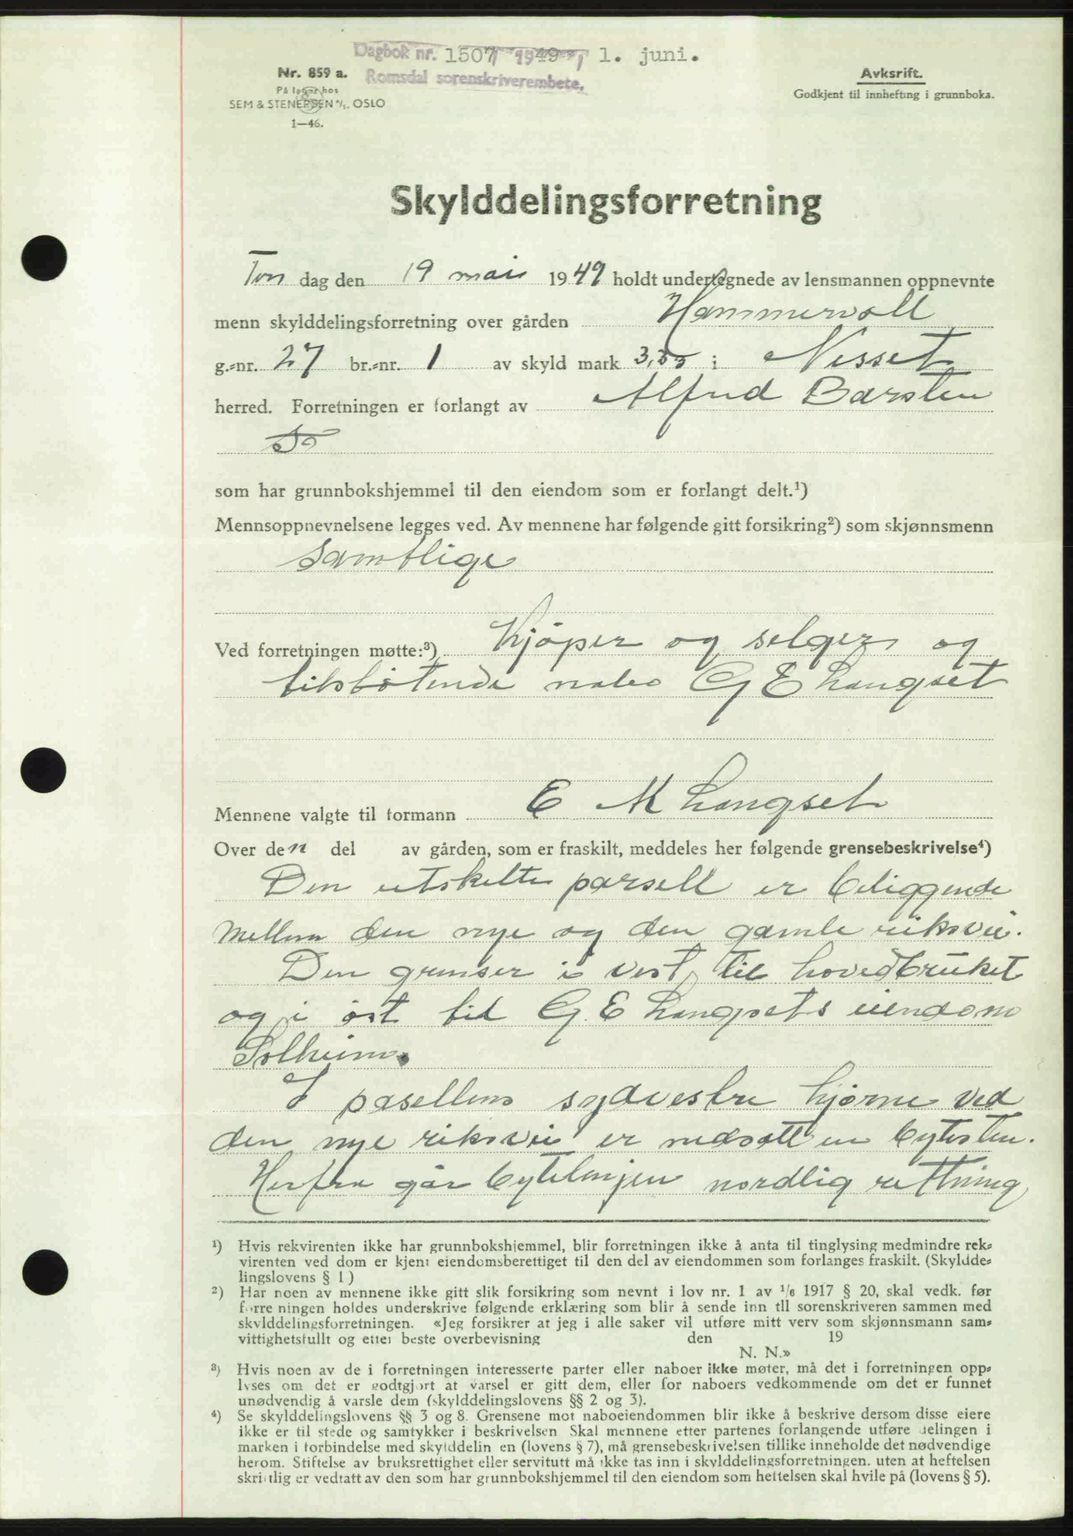 Dagbok nr. 1507/1949, 1. juni.
Romsdal sorenskriverembete.
Nr. 859 a.
På lager hos
SEM & STENERSEN A/S. OSLO
1—46.
Avksrift.
Godkjent til innhefting i grunnboka.
Skylddelingsforretning
Tors dag den 19 mai 1949 holdt undertegnede av lensmannen oppnevnte
menn skylddelingsforretning over gården Hammervoll
g.-nr. 27 br.-nr. 1 av skyld mark i Nesset
herred. Forretningen er forlangt av Alfred Barsten
som har grunnbokshjemmel til den eiendom som er forlangt delt.¹)
Mennsoppnevnelsene legges ved. Av mennene har følgende gitt forsikring²) som skjønnsmenn
samtlige
Ved forretningen møtte:³) Kjøper og selger og
tilstøtende nabo G E Langset
Mennene valgte til formann E M Langset
Over den del av gården, som er fraskilt, meddeles her følgende grensebeskrivelse⁴)
Den utskilte parsell er beliggende
mellom den nye og den gamle riksvei.
Den grenser i vest til hovedbruket
og i øst til G. E Langsets eiendom
Solheim.
I pasellens sydvestre hjørne ved
den nye riksvei er nedsatt en bytesten.
Herfra går bytelinjen nordlig rettning
¹) Hvis rekvirenten ikke har grunnbokshjemmel, blir forretningen ikke å anta til tinglysing medmindre rek-
virenten ved dom er kjent eiendomsberettiget til den del av eiendommen som forlanges fraskilt. (Skyldde-
lingslovens § 1)
²) Har noen av mennene ikke gitt slik forsikring som nevnt i lov nr. 1 av 1/6 1917 § 20, skal vedk. før
forretningen holdes underskrive følgende erklæring som blir å sende inn til sorenskriveren sammen med
skylddelingsforretningen. «Jeg forsikrer at jeg i alle saker vil utføre mitt verv som skjønnsmann sam-
vittighetsfullt og etter beste overbevisning den 19
N. N.»
³) Hvis noen av de i forretningen interesserte parter eller naboer ikke møter, må det i forretningen opp-
lyses om det er godtgjort at varsel er gitt dem, eller for naboers vedkommende om det er funnet
unødvendig å varsle dem (skylddelingslovens §§ 2 og 3).
⁴) Se skylddelingslovens §§ 3 og 8. Grensene mot naboeiendommen blir ikke å beskrive dersom disse eiere
ikke er til stede og samtykker i beskrivelsen. Skal mennene etter partenes forlangende utføre delingen i
marken i forbindelse med skylddelingen (lovens § 7), må grensebeskrivelsen tillike inneholde det nødvendige
herom. Stiftelse av bruksrettighet eller servitutt må ikke tas inn i skylddelingsforretningen, uten at heftelsen
skriftlig er vedtatt av den som har grunnbokshjemmel til den eiendom som heftelsen skal hvile på (lovens § 5).